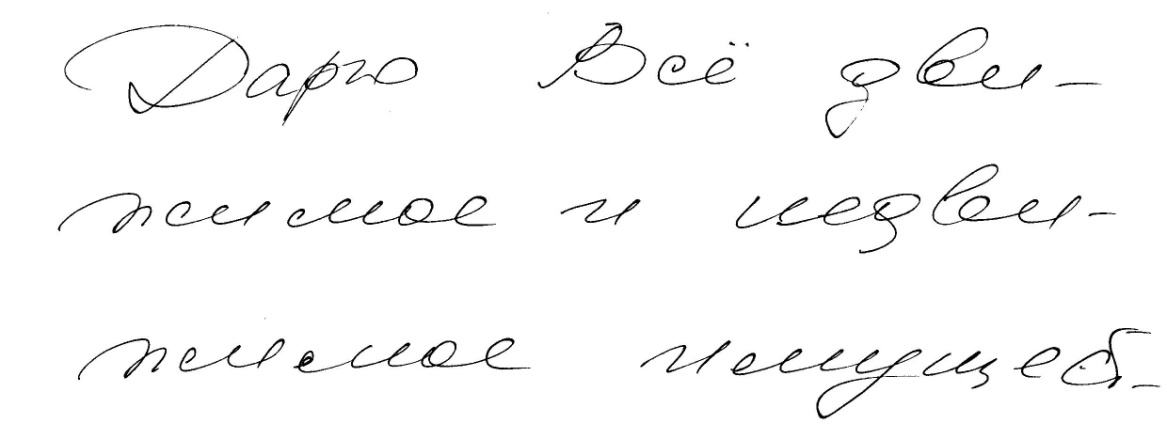 Дарю Всё дви-
жимое и недви-
жимое имущес-